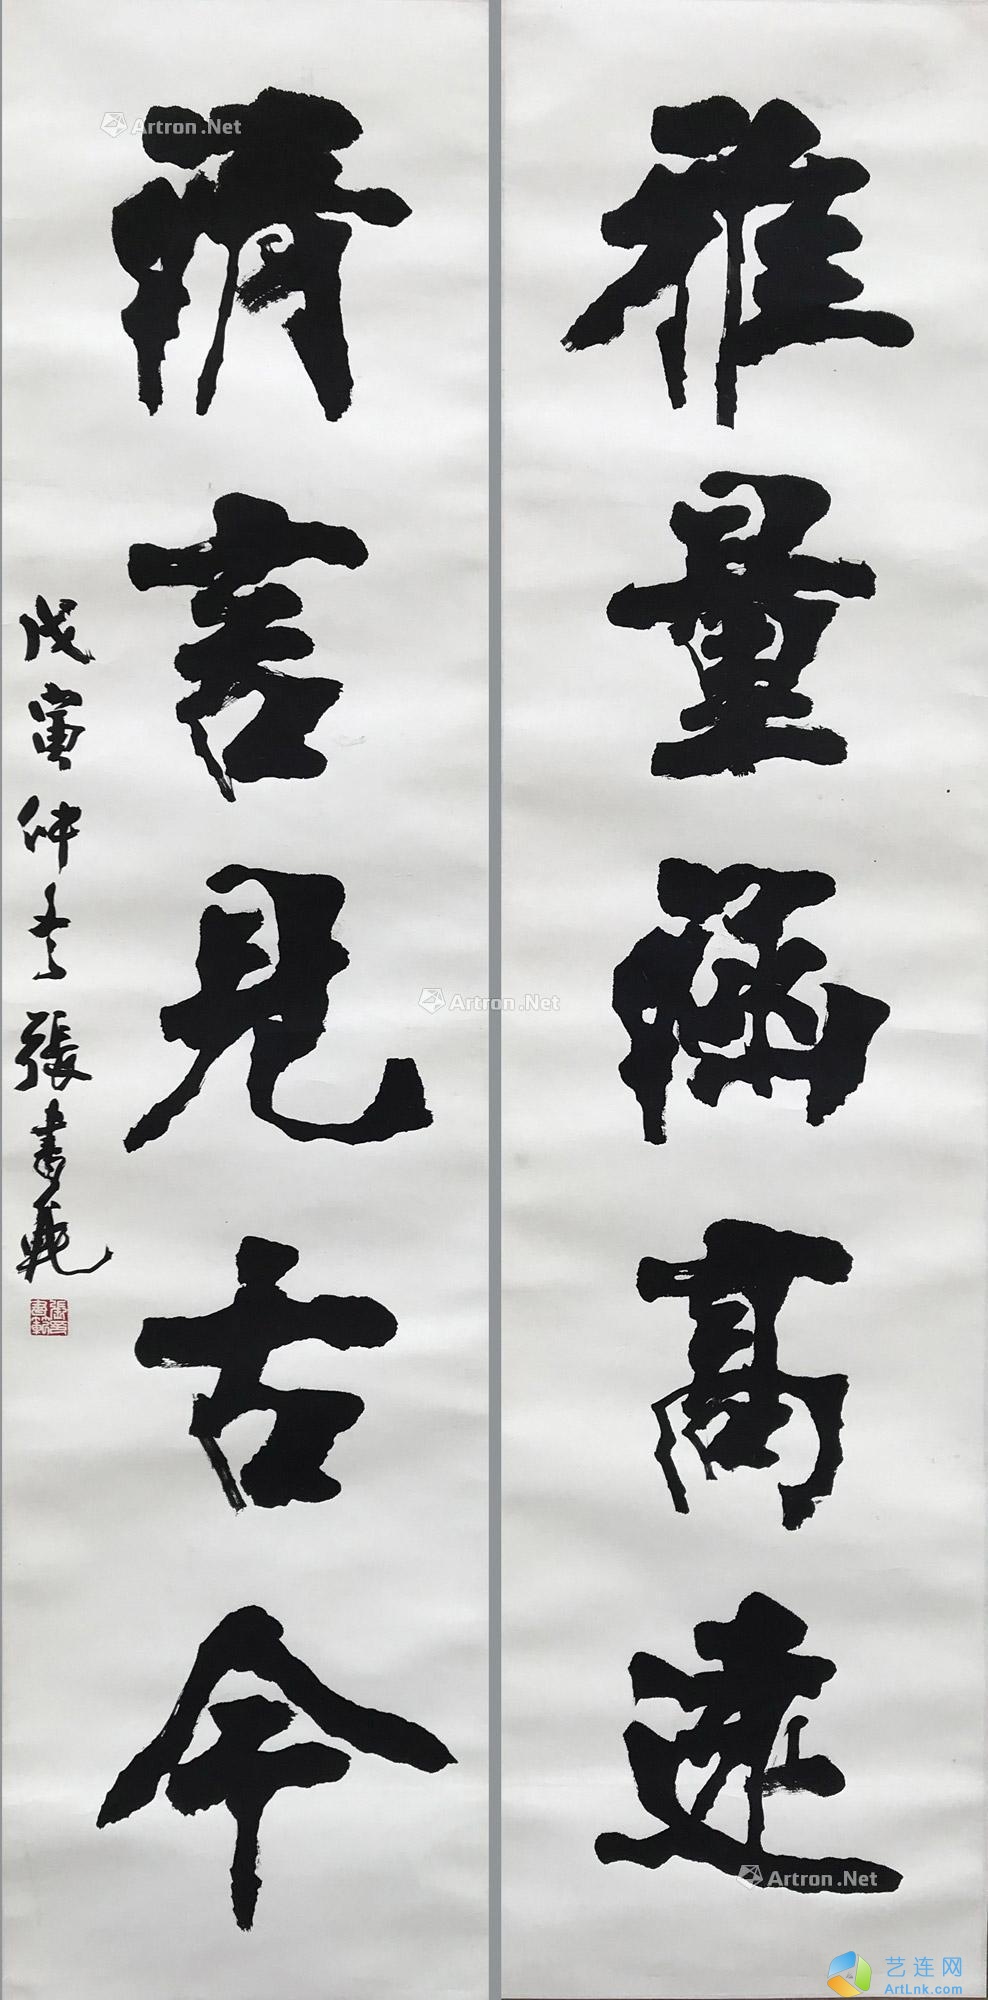 雅量涵高遠
清言見古今
戊寅仲冬張書範
張書範
Artron.Net
Artron.Net
Artron.Net
艺连网
ArtLnk.com